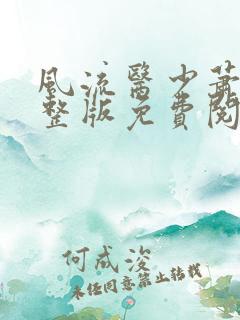 風流醫少蕭
整版免費閱
何成浚
未经同意禁止转载